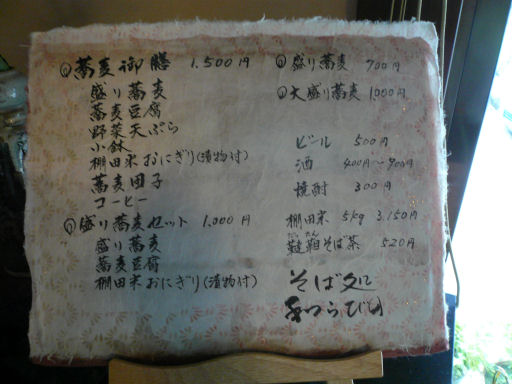 蕎麦御膳 1.500円
盛り蕎麦
蕎麦豆腐
野菜天ぷら
小鉢
棚田米おにぎり(漬物付)
蕎麦団子
コーヒー
盛り蕎麦セット 1.000円
盛り蕎麦
蕎麦豆腐
棚田米おにぎり(漬物付)
盛り蕎麦 700円
大盛り蕎麦 1000円
ビール 500円
酒 400円〜900円
焼酎 300円
棚田米 5kg 3.150円
韃靼そば茶 520円
だったん
そば処